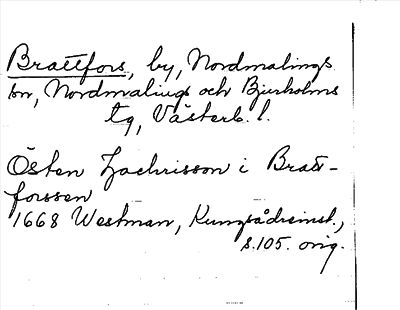 Brattfors, by, Nordmalings
sn, Nordmalings och Bjurholms
tg, Västerb. l.
Östen Zachrisson i Bratt-
forssen
1668 Westman, Kungsådreinst.,
s. 105. orig.